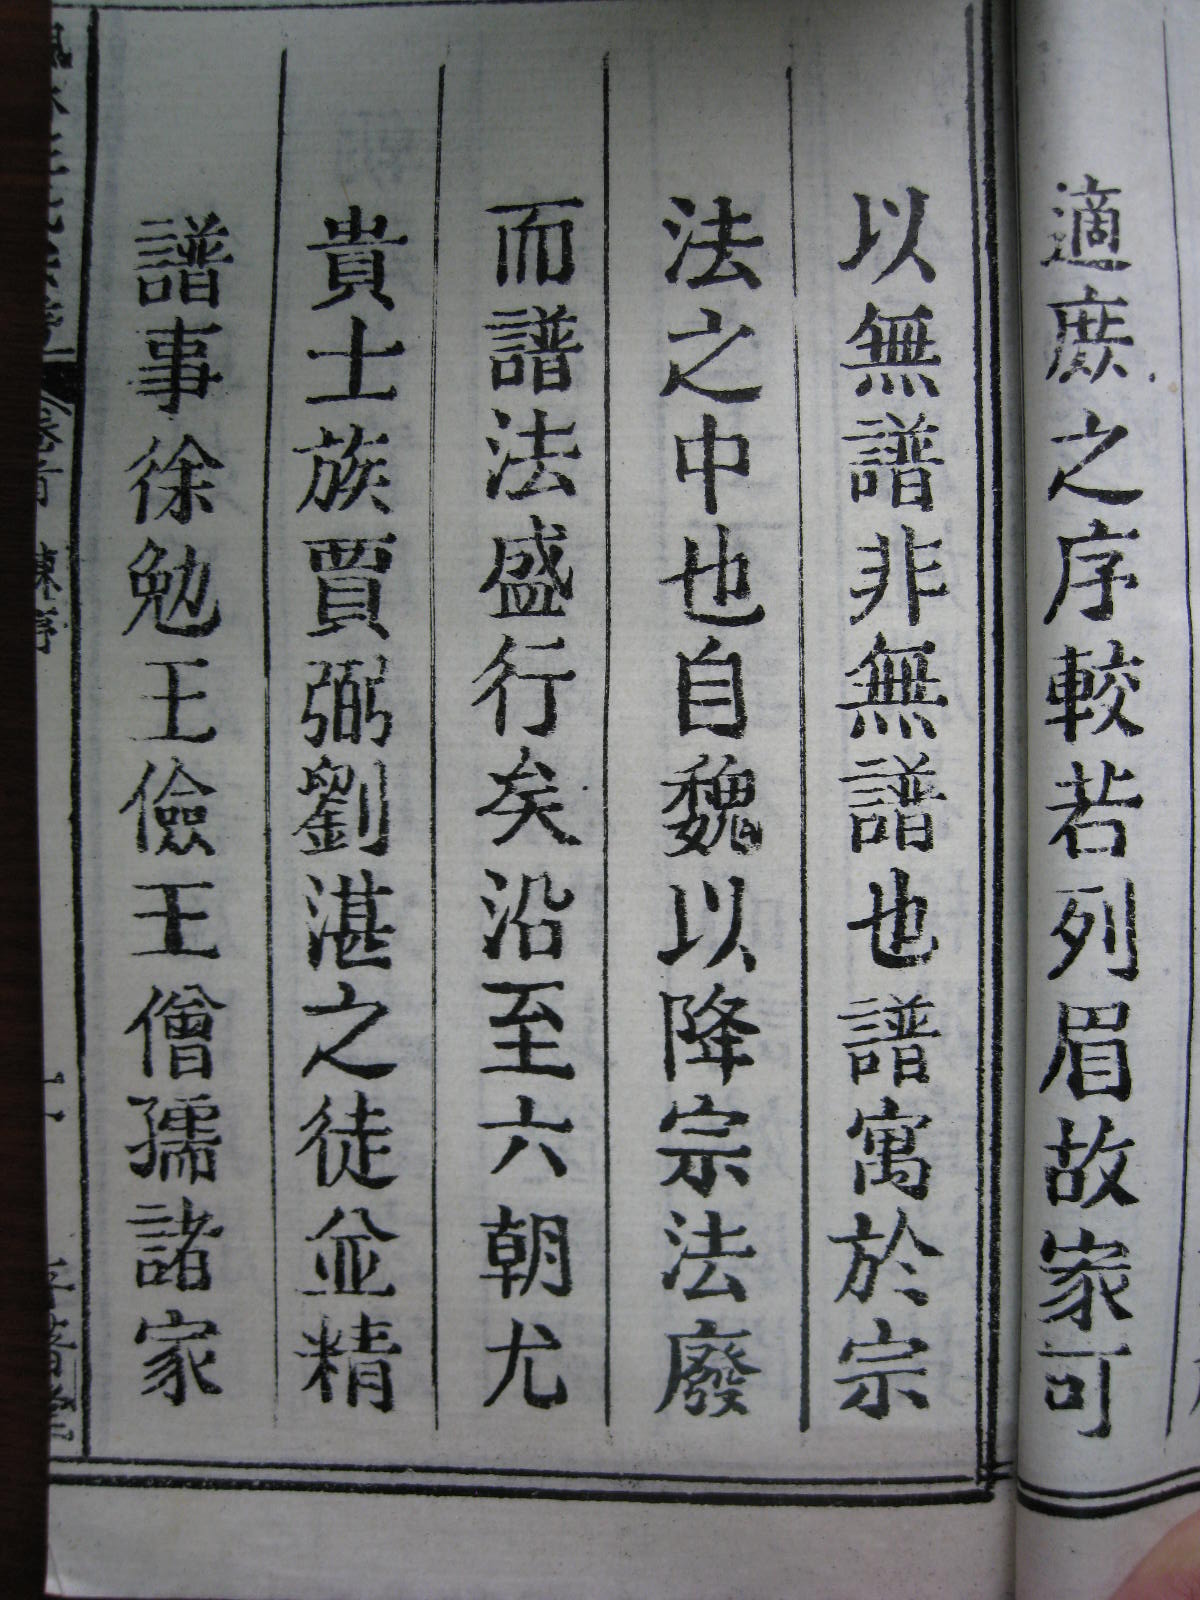 適庶之序較若列眉故家可
以無譜非無譜也譜寓於宗
法之中也自魏以降宗法廢
而譜法盛行矣沿至六朝尤
貴士族賈弼劉湛之徒並精
譜事徐勉王儉王僧孺諸家
卷首